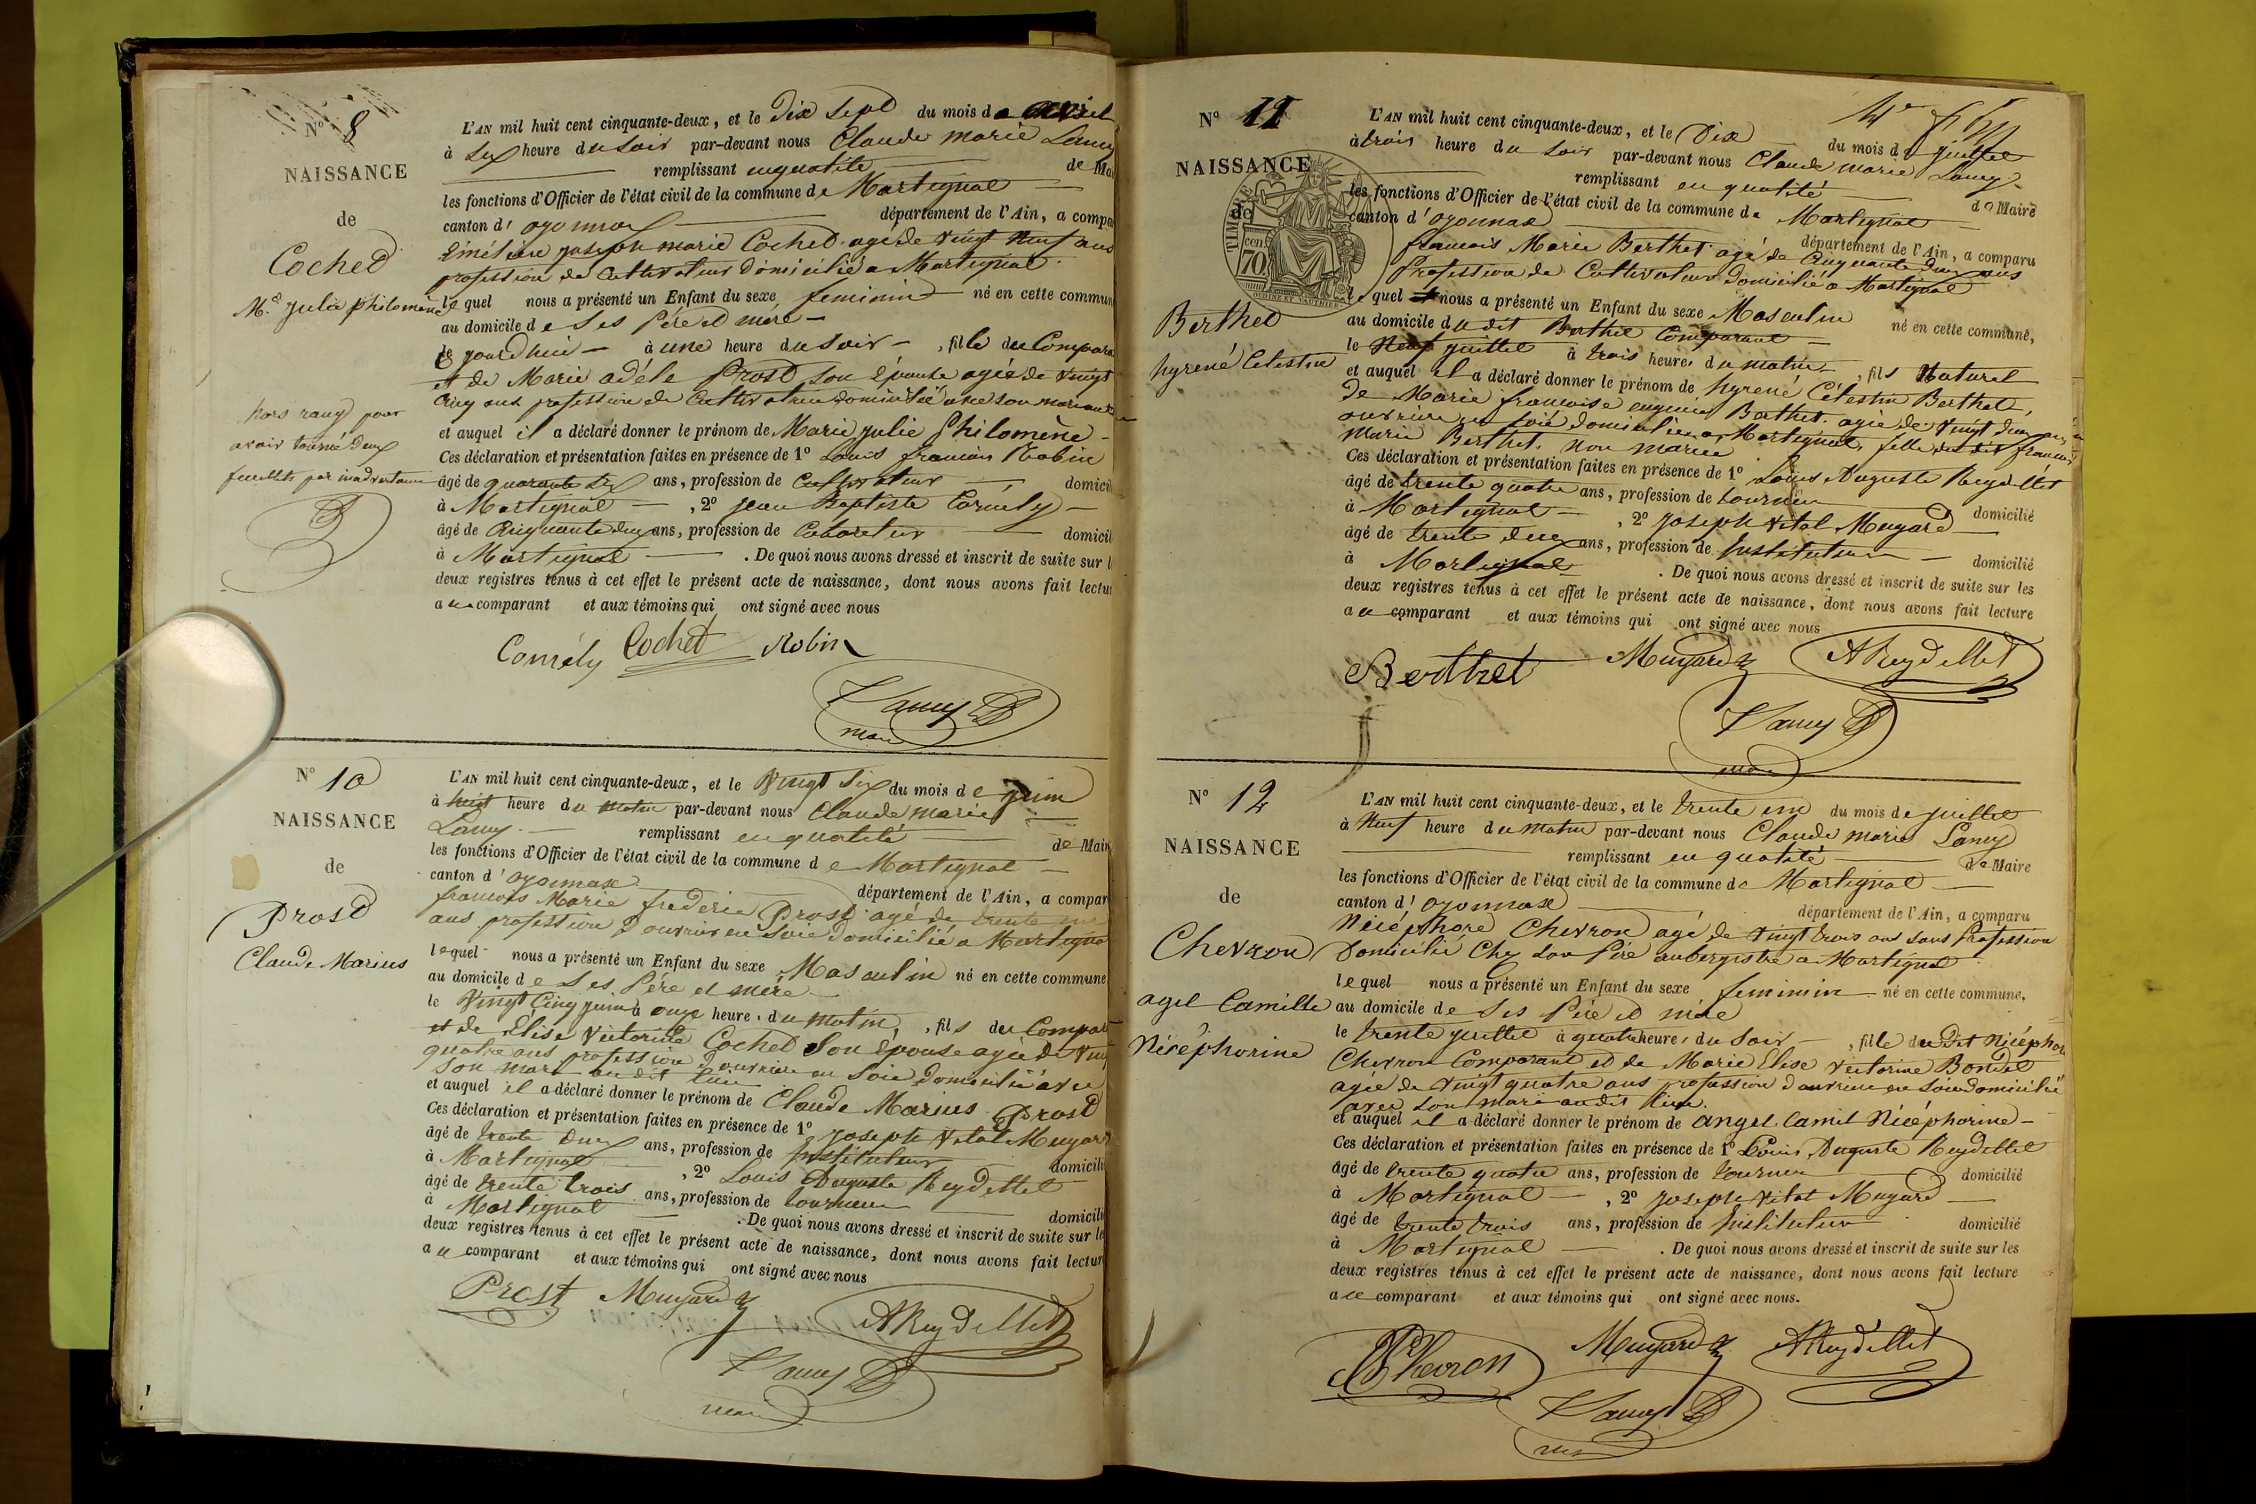 N° 8
NAISSANCE
de
Cochet
Mie julie philomène
hors rang pour
avoir tourné deux
feuillets par inadvertance
L'AN mil huit cent cinquante-deux, et le dix sept du mois de avril
à six heure du soir par-devant nous Claude marie Lamy
remplissant en qualité de Mai
les fonctions d'Officier de l'état civil de la commune de Martignat
canton d'oyonnax département de l'Ain, a compa
joseph marie Cochet agé de vingt neuf ans
profession de Cultivateur domicilié a Martignat
lequel nous a présenté un Enfant du sexe feminin né en cette commun
au domicile de ses Père et mère
le jourd'hui à une heure du soir, fille du Compara
et de Marie adéle Prost son épouse agée de vingt
cinq ans profession de Cultivatrice domiciliée avec son mari
et auquel il a déclaré donner le prénom de Marie julie Philomène
Ces déclaration et présentation faites en présence de 1° Louis françois Robin
âgé de quarante six ans, profession de Cultivateur domicil
à Martignat, 2° jean Baptiste Cormély
âgé de Cinquante deux ans, profession de Cabaretier domicil
à Martignat. De quoi nous avons dressé et inscrit de suite sur l
deux registres tenus à cet effet le présent acte de naissance, dont nous avons fait lectur
au comparant et aux témoins qui ont signé avec nous
Cormély Cochet Robin
Lamy
maire
N° 10
NAISSANCE
de
Prost
Claude Marius
L'AN mil huit cent cinquante-deux, et le Vingt six du mois de juin
à huit heure du matin par-devant nous Claude marie
Lamy remplissant en qualité de Mair
les fonctions d'Officier de l'état civil de la commune de Martignat
canton d'oyonnax département de l'Ain, a compar
françois Marie frederic Prost agé de trente
ans profession d'ouvrier en Soie domicilié a Martignat
lequel nous a présenté un Enfant du sexe Masculin né en cette commune
au domicile de ses Père et mère
le Vingt Cinq juin à onze heure du matin, fils du Compar
et de Elise victorine Cochet son épouse agée de vingt
quatre ans profession d'ouvriere en Soie domiciliée avec
son mari au dit lieu
et auquel il a déclaré donner le prénom de Claude Marius Prost
Ces déclaration et présentation faites en présence de 1° joseph vital Muyard
âgé de trente deux ans, profession de instituteur domicili
à Martignat, 2° Louis Auguste Reydellet
âgé de trente trois ans, profession de tourneur domicili
à Martignat. De quoi nous avons dressé et inscrit de suite sur le
deux registres tenus à cet effet le présent acte de naissance, dont nous avons fait lectur
au comparant et aux témoins qui ont signé avec nous
Prost Muyard AReydellet
Lamy
maire
N° 11
NAISSANCE
de
TIMBRE
cen. 70
Berthet
hyrené Celestin
L'AN mil huit cent cinquante-deux, et le Dix du mois de juillet
à trois heure du soir par-devant nous Claude marie Lamy
remplissant en qualité de Maire
les fonctions d'Officier de l'état civil de la commune de Martignat
canton d'oyonnax département de l'Ain, a comparu
francois Marie Berthet agé de Cinquante deux ans
Profession de Cultivateur domicilié a Martignat
lequel nous a présenté un Enfant du sexe Masculin né en cette commune,
au domicile du dit Berthet Comparant
le Neuf juillet à trois heures du matin, fils Naturel
et auquel il a déclaré donner le prénom de hyrené Célestin Berthet,
de Marie francoise eugenie Berthet agée de vingt deux ans
ouvriere en soie domiciliée a Martignat, fille du dit francois
Marie Berthet. Non mariée
Ces déclaration et présentation faites en présence de 1° Louis Auguste Reydellet
âgé de trente quatre ans, profession de tourneur domicilié
à Martignat, 2° joseph vital Muyard
âgé de trente deux ans, profession de Instituteur domicilié
à Martignat. De quoi nous avons dressé et inscrit de suite sur les
deux registres tenus à cet effet le présent acte de naissance, dont nous avons fait lecture
au comparant et aux témoins qui ont signé avec nous
Berthet Muyard AReydellet
Lamy
maire
N° 12
NAISSANCE
de
Chevron
agel Camille
Nicéphorine
L'AN mil huit cent cinquante-deux, et le trente un du mois de juillet
à Neuf heure du matin par-devant nous Claude marie Lamy
remplissant en qualité de Maire
les fonctions d'Officier de l'état civil de la commune de Martignat
canton d'oyonnax département de l'Ain, a comparu
Nicéphore Chevron agé de vingt trois ans sans Profession
Domicilié Chez son Père aubergiste a Martignat
lequel nous a présenté un Enfant du sexe feminin né en cette commune,
au domicile de ses Père et mère
le trente juillet à quatre heure, du soir, fille du Dit Nicéphore
Chevron Comparant et de Marie Elise victorine Bondet
agée de vingt quatre ans profession d'ouvriere en soie domiciliée
avec son mari au dit lieu.
et auquel il a déclaré donner le prénom de angel Camil Nicéphorine
Ces déclaration et présentation faites en présence de 1° Louis Auguste Reydellet
âgé de trente quatre ans, profession de tourneur domicilié
à Martignat, 2° joseph vital Muyard
âgé de trente trois ans, profession de Instituteur domicilié
à Martignat. De quoi nous avons dressé et inscrit de suite sur les
deux registres tenus à cet effet le présent acte de naissance, dont nous avons fait lecture
au comparant et aux témoins qui ont signé avec nous.
Chevron Muyard AReydellet
Lamy